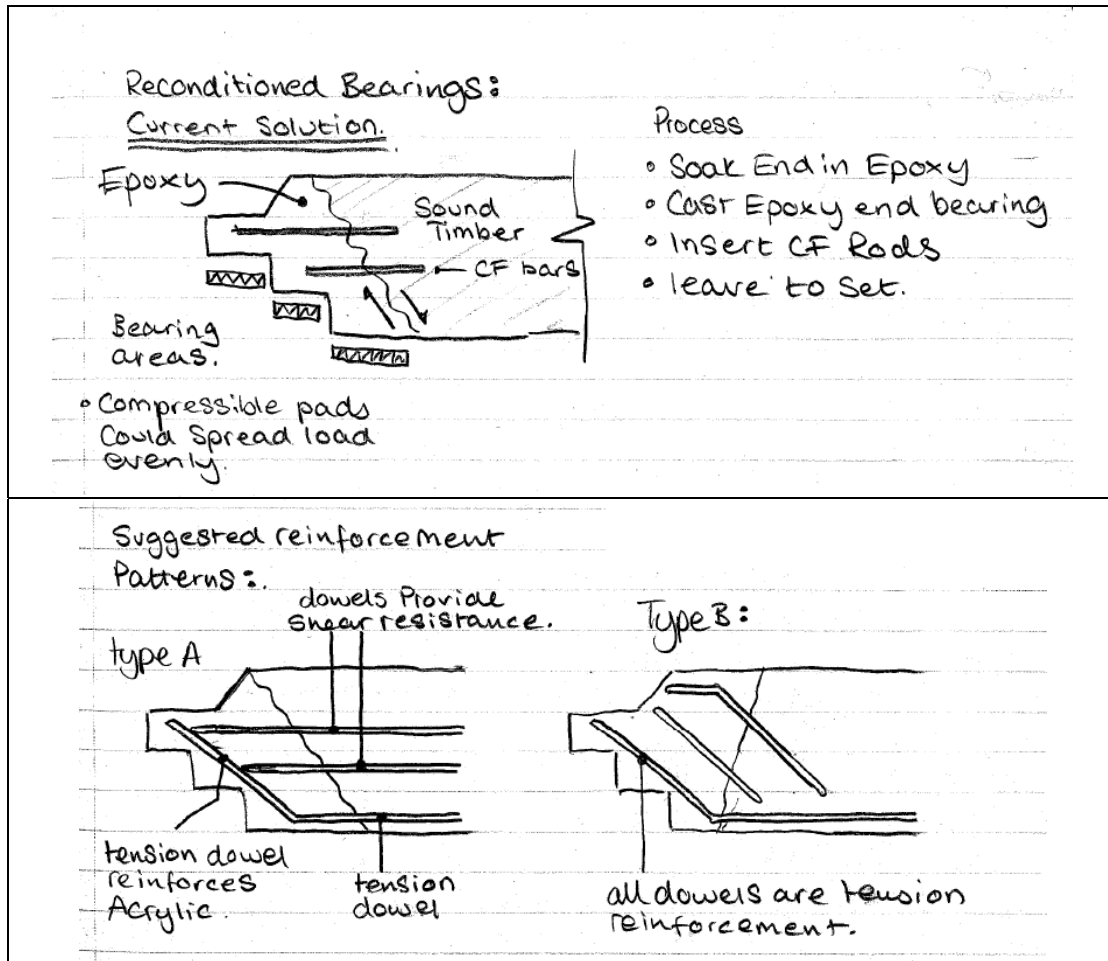 Reconditioned Bearings:
Current Solution.
Epoxy
Sound
Timber
CF bars
Bearing
areas.
• Compressible pads
Could Spread load
evenly.
Process
• Soak End in Epoxy
• Cast Epoxy end bearing
• Insert CF Rods
• leave to Set.
Suggested reinforcement
Patterns:.
dowels Provide
Shear resistance.
type A
tension dowel
reinforces
Acrylic.
tension
dowel
Type B:
all dowels are tension
reinforcement.